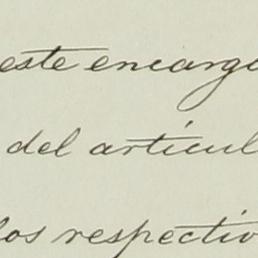 este encargo
del articul
los respectiv